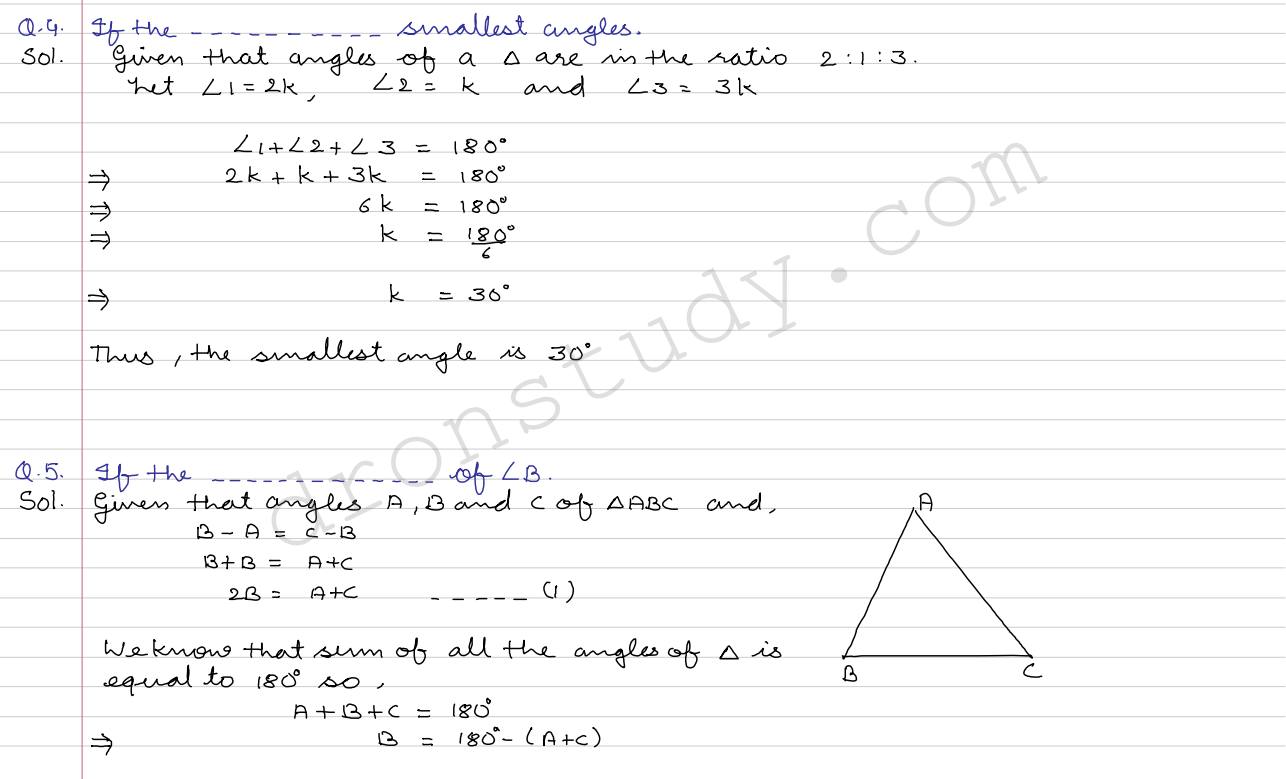 Q.4. If the ----------- smallest angles.
Sol. Given that angles of a Δ are in the ratio 2:1:3.
Let ∠1=2k, ∠2= k and ∠3= 3k
∠1+∠2+∠3 = 180°
⇒ 2k + k + 3k = 180°
⇒ 6k = 180°
⇒ k = 180°/6
⇒ k = 30°
Thus, the smallest angle is 30°
Q.5. If the ------------- of ∠B.
Sol. Given that angles A, B and C of ΔABC and,
B - A = C - B
B+B = A+C
2B = A+C ----- (1)
We know that sum of all the angles of Δ is
equal to 180° so,
A+B+C = 180°
⇒ B = 180° - (A+C)
A
B
C
dronstudy.com